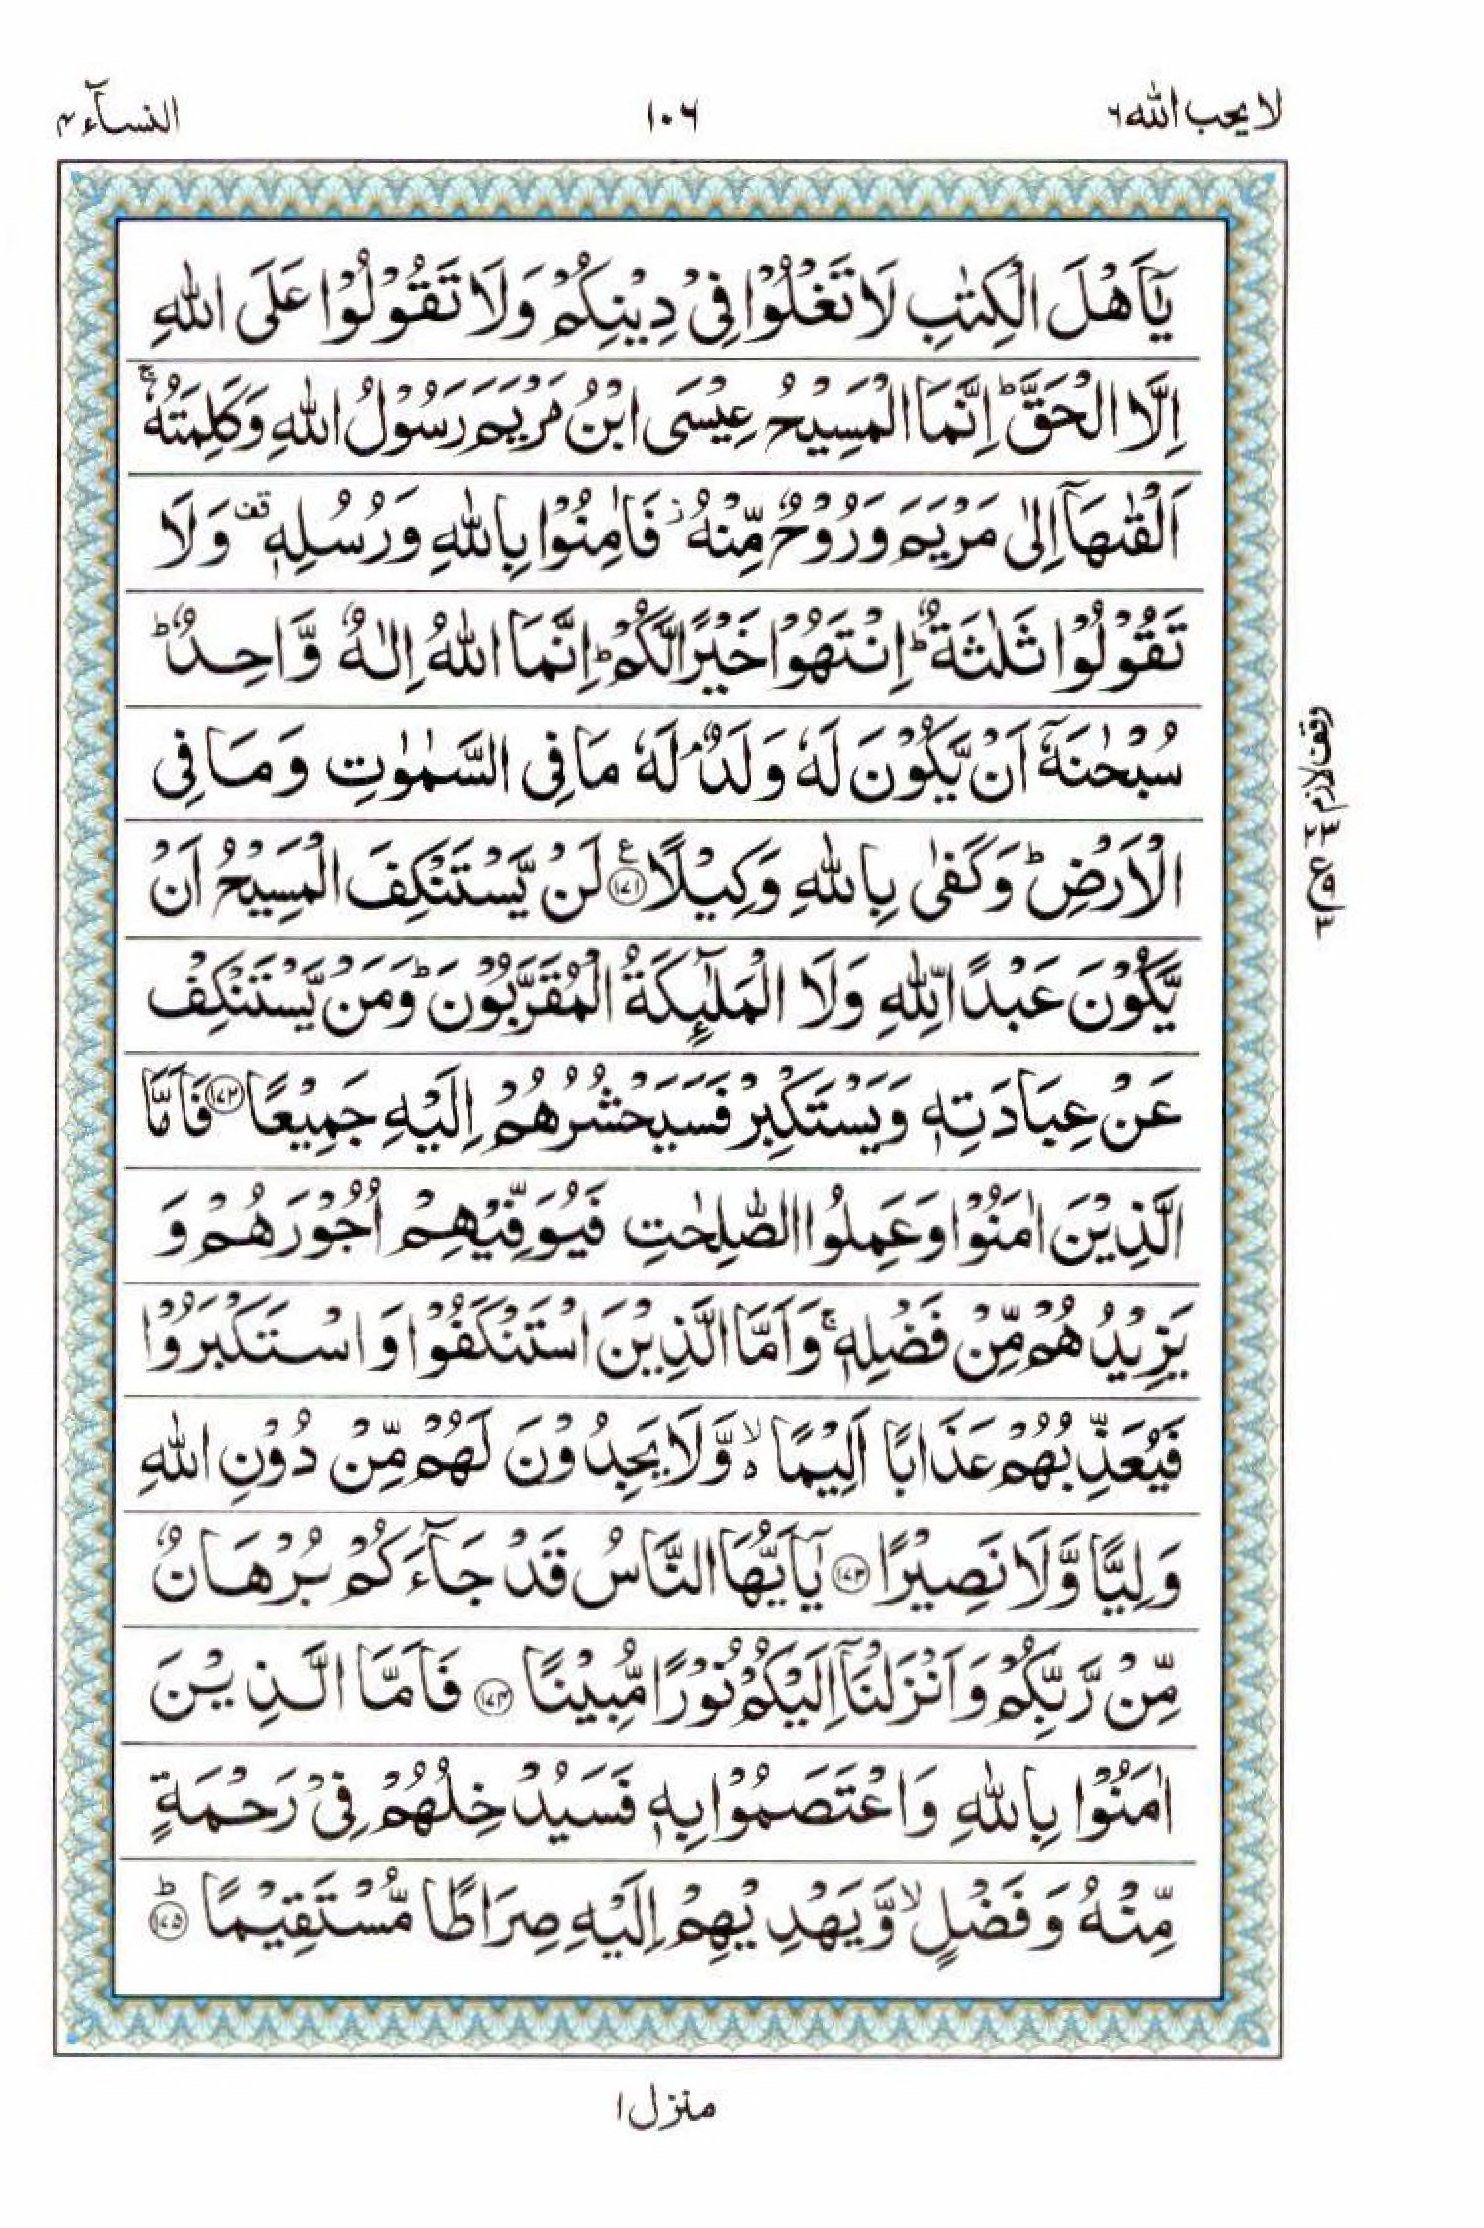 لا یحب الله ۶
۱۰۶
النسآء ۴
يٰۤاَهْلَ الْكِتٰبِ لَا تَغْلُوْا فِىْ دِيْنِكُمْ وَلَا تَقُوْلُوْا عَلَى اللّٰهِ
اِلَّا الْحَقَّ ؕ اِنَّمَا الْمَسِيْحُ عِيْسَى ابْنُ مَرْيَمَ رَسُوْلُ اللّٰهِ وَكَلِمَتُهٗ ۚ
اَلْقٰىهَاۤ اِلٰى مَرْيَمَ وَرُوْحٌ مِّنْهُ ؗ فَاٰمِنُوْا بِاللّٰهِ وَرُسُلِهٖ ۟ قف وَلَا
تَقُوْلُوْا ثَلٰثَةٌ ؕ اِنْتَهُوْا خَيْرًا لَّكُمْ ؕ اِنَّمَا اللّٰهُ اِلٰهٌ وَّاحِدٌ ؕ
سُبْحٰنَهٗۤ اَنْ يَّكُوْنَ لَهٗ وَلَدٌ ۘ لَهٗ مَا فِى السَّمٰوٰتِ وَمَا فِى
الْاَرْضِ ؕ وَكَفٰى بِاللّٰهِ وَكِيْلًا ع ﴿۱۷۱﴾ لَنْ يَّسْتَنْكِفَ الْمَسِيْحُ اَنْ
يَّكُوْنَ عَبْدًا لِّلّٰهِ وَلَا الْمَلٰٓئِكَةُ الْمُقَرَّبُوْنَ ؕ وَمَنْ يَّسْتَنْكِفْ
عَنْ عِبَادَتِهٖ وَيَسْتَكْبِرْ فَسَيَحْشُرُهُمْ اِلَيْهِ جَمِيْعًا ﴿۱۷۲﴾ فَاَمَّا
الَّذِيْنَ اٰمَنُوْا وَعَمِلُوا الصّٰلِحٰتِ فَيُوَفِّيْهِمْ اُجُوْرَهُمْ وَ
يَزِيْدُهُمْ مِّنْ فَضْلِهٖ ۚ وَاَمَّا الَّذِيْنَ اسْتَنْكَفُوْا وَاسْتَكْبَرُوْا
فَيُعَذِّبُهُمْ عَذَابًا اَلِيْمًا ۙ۵ وَّلَا يَجِدُوْنَ لَهُمْ مِّنْ دُوْنِ اللّٰهِ
وَلِيًّا وَّلَا نَصِيْرًا ﴿۱۷۳﴾ يٰۤاَيُّهَا النَّاسُ قَدْ جَآءَكُمْ بُرْهَانٌ
مِّنْ رَّبِّكُمْ وَاَنْزَلْنَاۤ اِلَيْكُمْ نُوْرًا مُّبِيْنًا ﴿۱۷۴﴾ فَاَمَّا الَّذِيْنَ
اٰمَنُوْا بِاللّٰهِ وَاعْتَصَمُوْا بِهٖ فَسَيُدْخِلُهُمْ فِىْ رَحْمَةٍ
مِّنْهُ وَفَضْلٍ ۙ وَّيَهْدِيْهِمْ اِلَيْهِ صِرَاطًا مُّسْتَقِيْمًا ؕ ﴿۱۷۵﴾
وقف لازم
منزل ۱